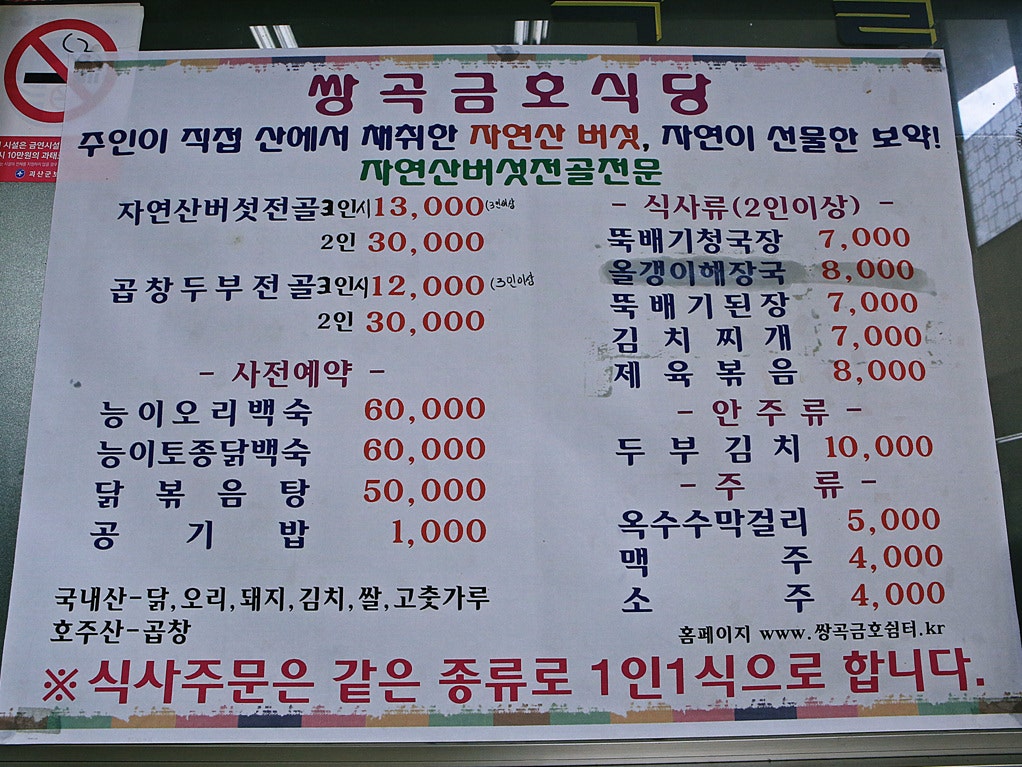 쌍곡금호식당
주인이 직접 산에서 채취한 자연산 버섯, 자연이 선물한 보약!
자연산버섯전골전문
자연산버섯전골 3인시 13,000 (3인이상
2인 30,000
곱창두부전골 3인시 12,000 (3인이상
2인 30,000
- 사전예약 -
능이오리백숙 60,000
능이토종닭백숙 60,000
닭볶음탕 50,000
공기밥 1,000
국내산-닭,오리,돼지,김치,쌀,고춧가루
호주산-곱창
- 식사류(2인이상) -
뚝배기청국장 7,000
올갱이해장국 8,000
뚝배기된장 7,000
김치찌개 7,000
제육볶음 8,000
- 안주류 -
두부김치 10,000
- 주류 -
옥수수막걸리 5,000
맥주 4,000
소주 4,000
홈페이지 www.쌍곡금호쉼터.kr
※식사주문은 같은 종류로 1인1식으로 합니다.
시설은 금연시설
시 10만원의 과태
괴산군보